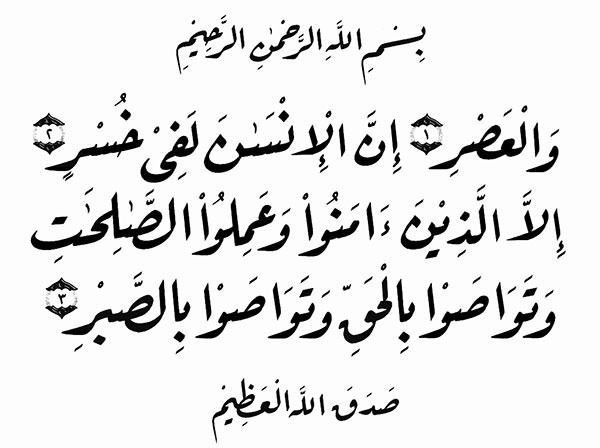 بِسْمِ اللَّهِ الرَّحْمٰنِ الرَّحِيْمِ
وَالْعَصْرِ ﴿١﴾ إِنَّ الْإِنْسَٰنَ لَفِيْ خُسْرٍ ﴿٢﴾
إِلاَّ الَّذِيْنَ ءَامَنُواْ وَعَمِلُواْ الصَّٰلِحَٰتِ
وَتَوَاصَوْا بِالْحَقِّ وَتَوَاصَوْا بِالصَّبْرِ ﴿٣﴾
صَدَقَ اللَّهُ الْعَظِيْمُ